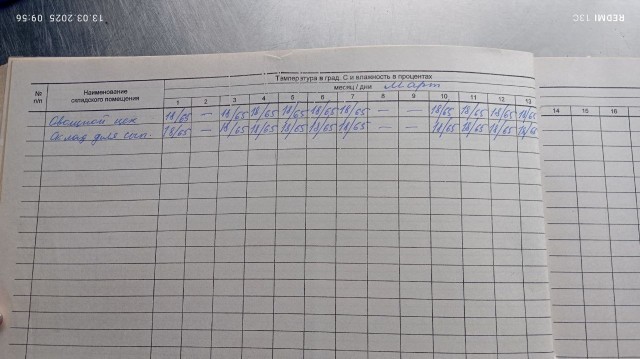 09:56 13.03.2025
REDMI 13C
Температура в град. С и влажность в процентах
№ п/п Наименование складского помещения месяц / дни Март
1 2 3 4 5 6 7 8 9 10 11 12 13 14 15 16
Овощной цех 18/65 — 18/65 18/65 18/65 18/65 18/65 — — 18/65 18/65 18/65 18/65
Склад для сып. 18/65 — 18/65 18/65 18/65 18/65 18/65 — — 18/65 18/65 18/65 18/65